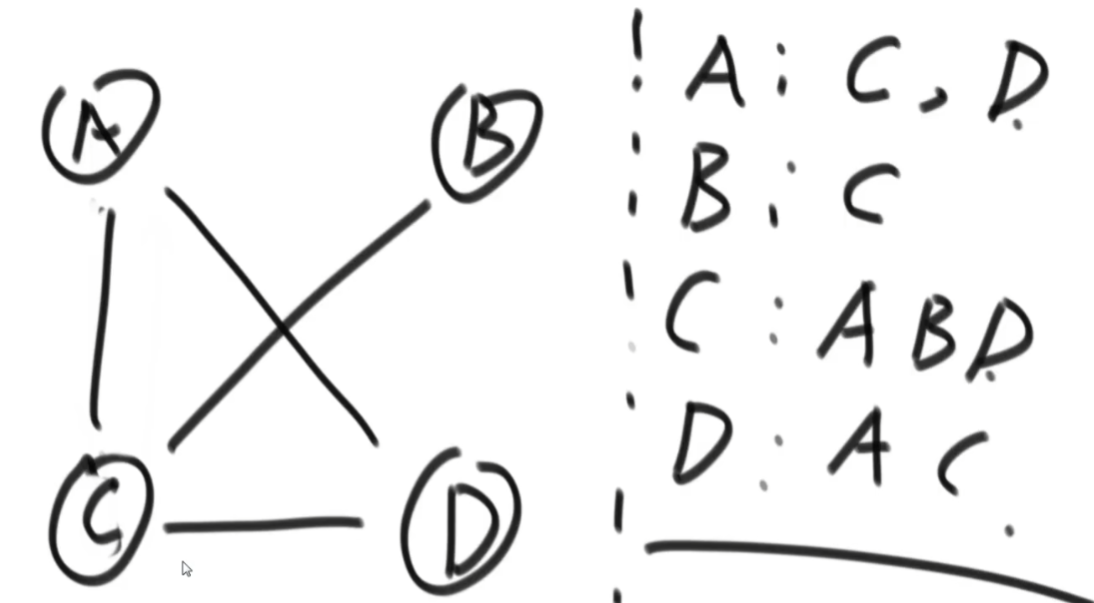 A B
C D
A : C, D
B : C
C : A B D
D : A C